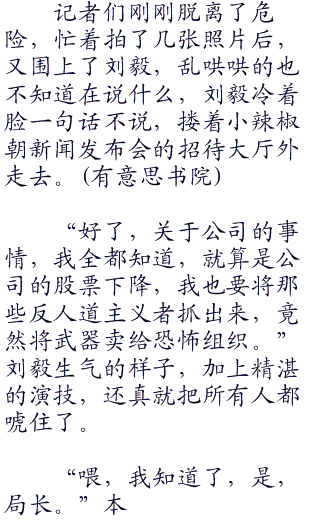 记者们刚刚脱离了危
险，忙着拍了几张照片后，
又围上了刘毅，乱哄哄的也
不知道在说什么，刘毅冷着
脸一句话不说，搂着小辣椒
朝新闻发布会的招待大厅外
走去。（有意思书院）
“好了，关于公司的事
情，我全都知道，就算是公
司的股票下降，我也要将那
些反人道主义者抓出来，竟
然将武器卖给恐怖组织。”
刘毅生气的样子，加上精湛
的演技，还真就把所有人都
唬住了。
“喂，我知道了，是，
局长。”本